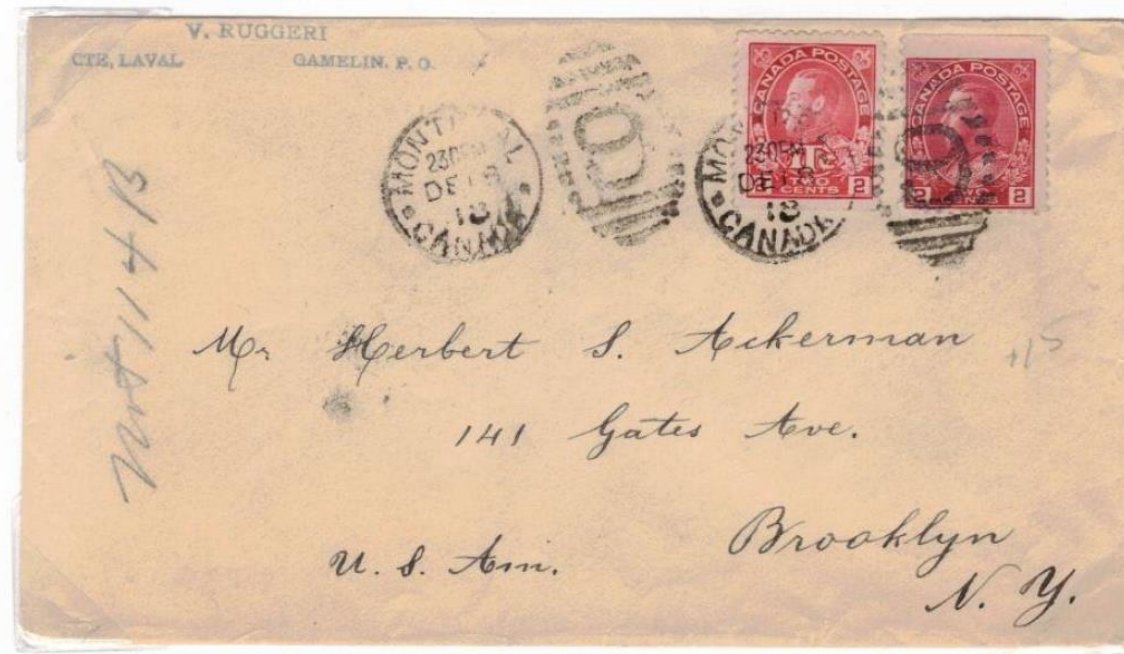 V. RUGGERI
CTE, LAVAL GAMELIN. P. O.
MONTREAL
230PM
DE 18
18
CANADA
9
MO
230PM
DE 18
18
CANADA
9
CANADA POSTAGE
1TC
2 TWO CENTS 2
CANADA POSTAGE
2 CENTS 2
114B
Mr Herbert S. Ackerman
+15
141 Gates Ave.
Brooklyn
U. S. Am.
N. Y.